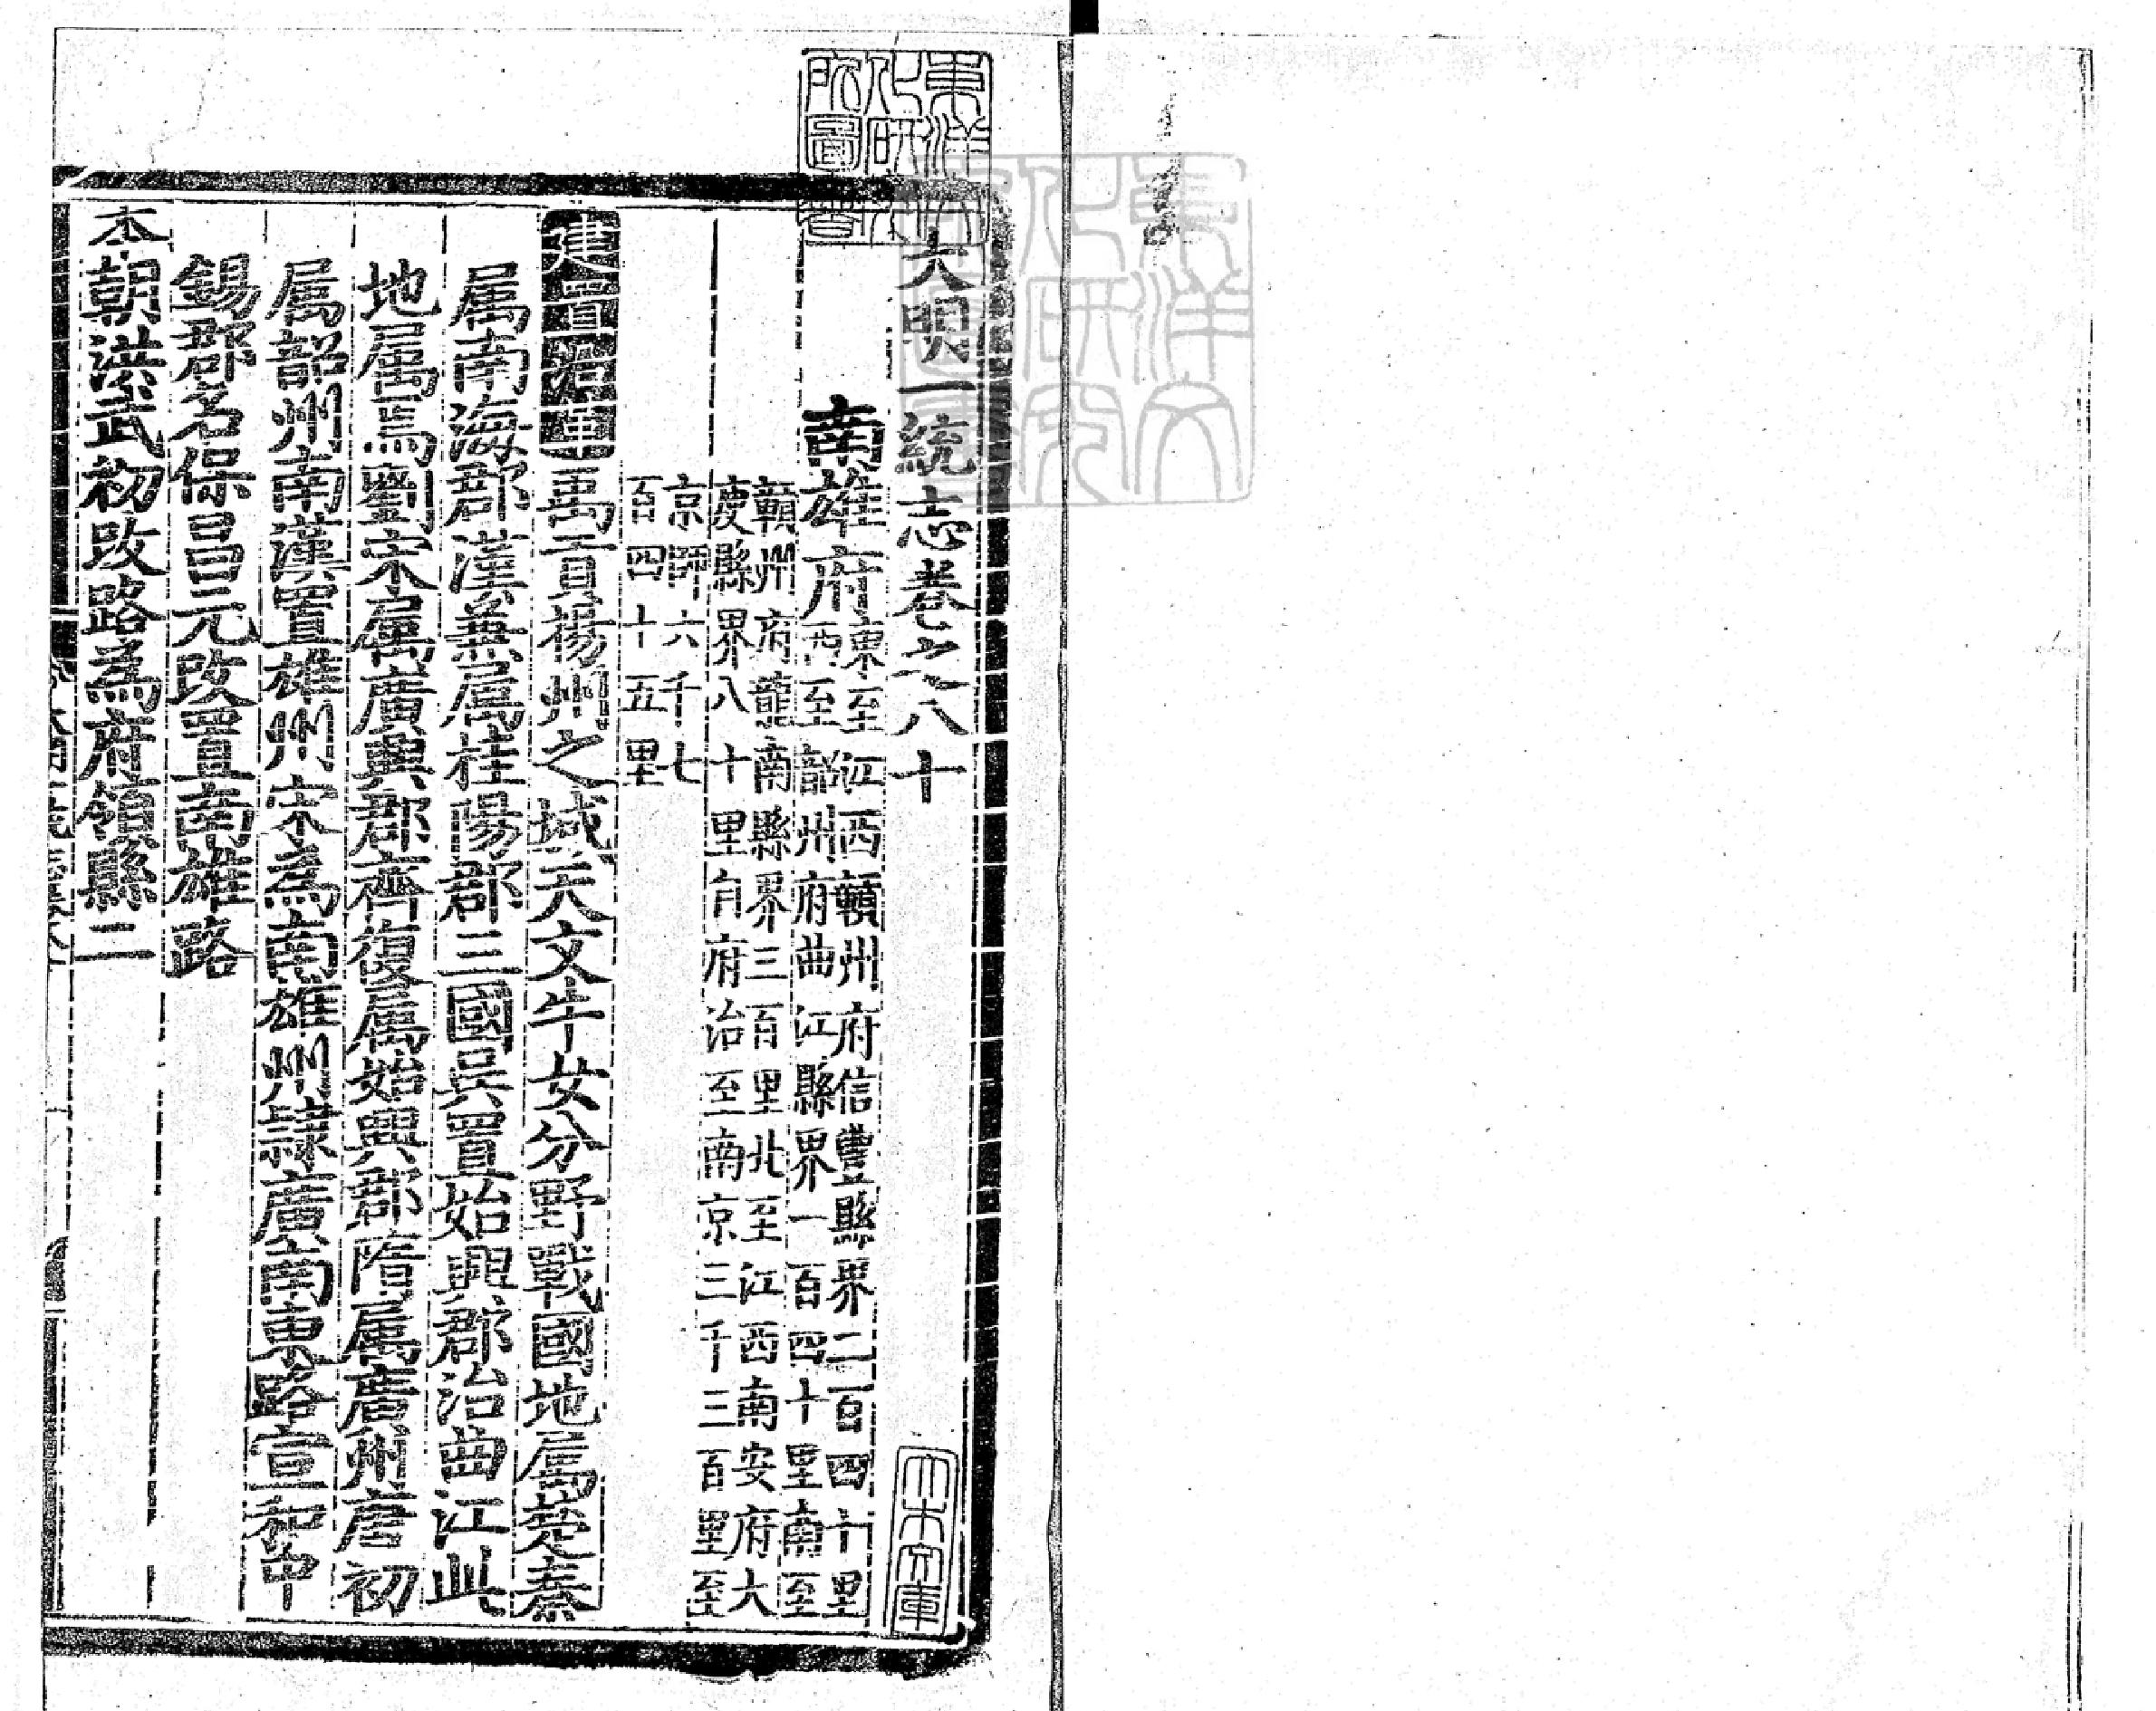 大明一統志卷之八十
南雄府東至江西贛州府信豐縣界二百四十里
西至韶州府曲江縣界一百四十里南至
贛州府龍南縣界三百里北至江西南安府大
庾縣界八十里自府治至南京三千三百里至
京師六千七
百四十五里
建置沿革禹貢楊州之域天文牛女分野戰國地属楚秦
属南海郡漢兼属桂陽郡三國吳置始興郡治曲江此
地属焉劉宋属廣興郡齊復属始興郡隋属廣州唐初
属韶州南漢置雄州宋為南雄州隷廣南東路宣和中
錫郡名保昌元改置南雄路
本朝洪武初改路為府領縣二
東洋文化研究所圖書
大木文庫